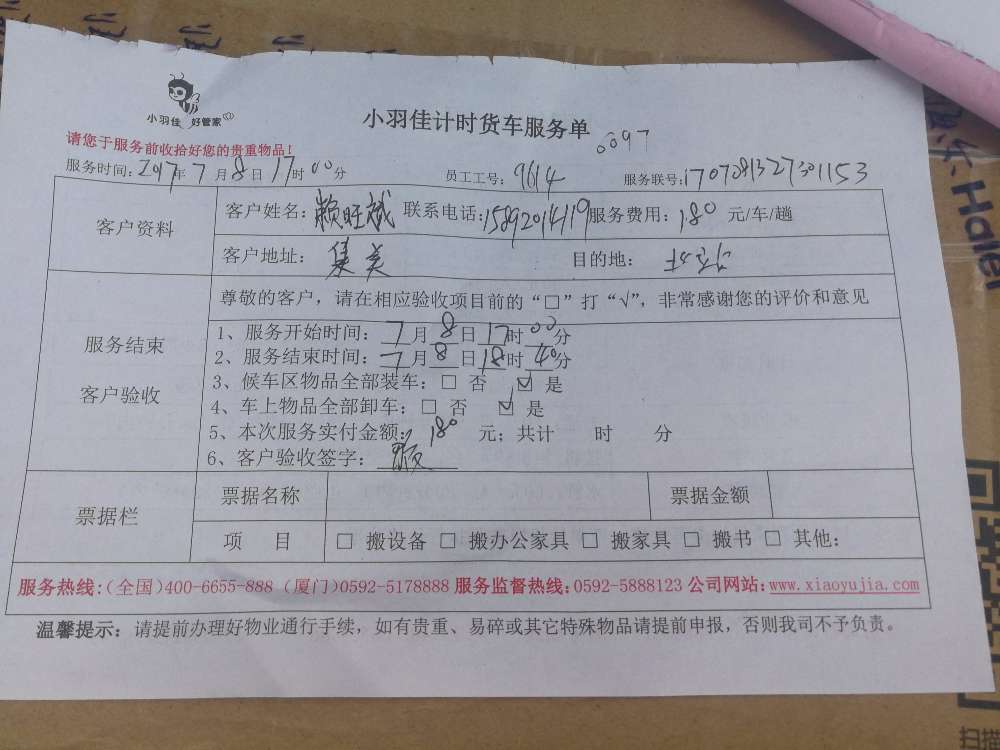 小羽佳 好管家
小羽佳计时货车服务单
0097
请您于服务前收拾好您的贵重物品!
服务时间: 2017年7月8日17时00分 员工工号: 9614 服务联号: 1707081327301153
客户资料
客户姓名: 赖旺斌 联系电话: 15892014119 服务费用: 180 元/车/趟
客户地址: 集美 目的地:
服务结束
客户验收
尊敬的客户，请在相应验收项目前的“□”打“√”，非常感谢您的评价和意见
1、服务开始时间: 7月8日17时00分
2、服务结束时间: 7月8日18时40分
3、候车区物品全部装车: □ 否 ☑ 是
4、车上物品全部卸车: □ 否 ☑ 是
5、本次服务实付金额: 180 元; 共计 时 分
6、客户验收签字:
票据栏
票据名称 票据金额
项 目 □ 搬设备 □ 搬办公家具 □ 搬家具 □ 搬书 □ 其他:
服务热线:(全国)400-6655-888 (厦门)0592-5178888 服务监督热线:0592-5888123 公司网站:www.xiaoyujia.com
温馨提示: 请提前办理好物业通行手续，如有贵重、易碎或其它特殊物品请提前申报，否则我司不予负责。
Haier
扫描